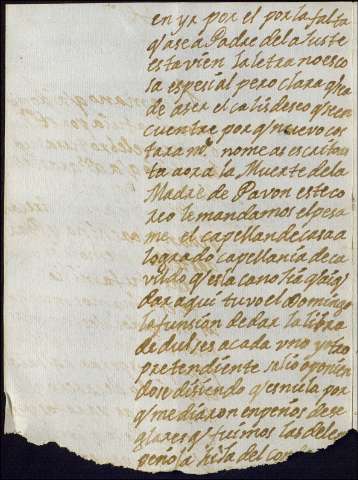 en yr por el por la falta
q̃ ase a Padre del ajuste
esta vien la letra no es co
sa espesial pero clara q̃ ha
de aser el calis deseo q̃ se en
cuentre por q̃ nuevo cos
tara m.º no me as escrito
ta aora la Muerte de la
Madre de Pavon este co
reo le mandamos el pesa
me. el capellan de casa a
logrado capellania de ca
vildo q̃ es la
dar aqui tuvo el Domingo
la funsion de dar la libra
de dulses a cada uno y otro
pretendiente salio oponien
dose disiendo q̃ es nula por
q̃ mediaron enpeños de se
glares q̃ fuimos las de el en
peño ja hila del